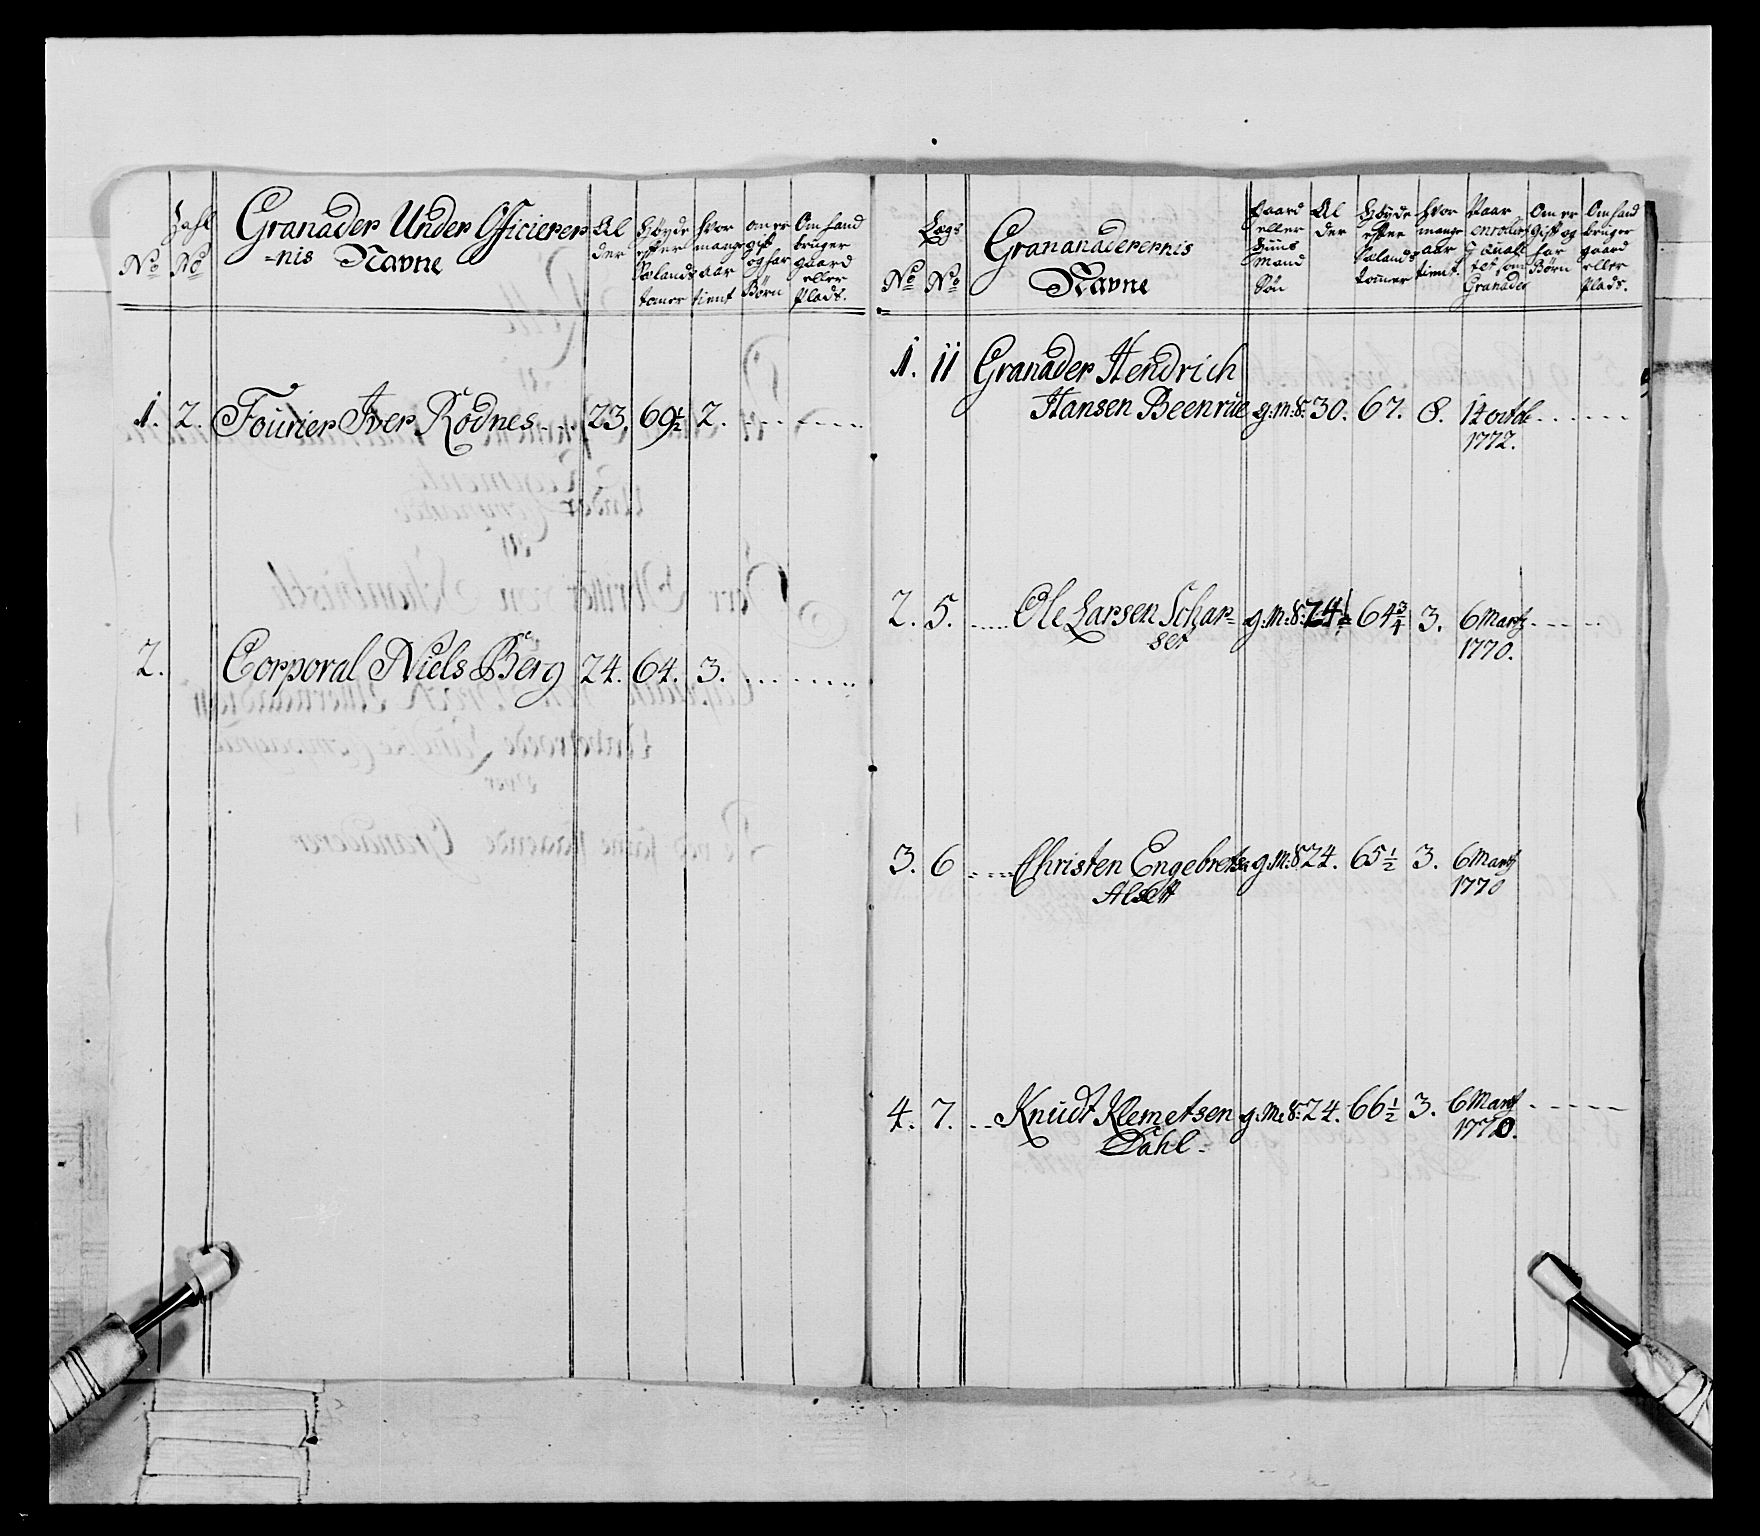 No
Zahl No
Granader Under Officierer
=nis Navne
Al
der
Høyde
efter
Sælands
tomer
hvor
mange
aar
tient
om er
gift
og har
Børn
Om hand
bruger
gaard
eller
Plads.
1. 2. Fourier Iver Rodnes 23. 69½ 2.
2. Corporal Niels Berg 24. 64. 3.
No
Lægs No
Grananaderernis
Navne
Gaard
eller
Huus
Mand
Søn
Al
der
Høyde
efter
Sælands
tommer
hvor
mange
aar
tient.
Naar
enroulert
tet som
Granader
Om er
gift og
har
Børn
Om hand
bruger
gaard
eller
Plads.
1. 11 Granader Hendrich
Hansen Beenrüe g:m:S: 30. 67. 8. 14 octob
1772.
2. 5. Ole Larsen Schar=
set g:M:S: 24 64¾ 3. 6 Martz
1770.
3. 6 Christen Engebretsn g:M:S 24. 65½ 3. 6 Martz
Alsett 1770
4. 7. Knudt Klemetsen g:M:S: 24. 66½ 3. 6 Martz
Dahl. 1770.